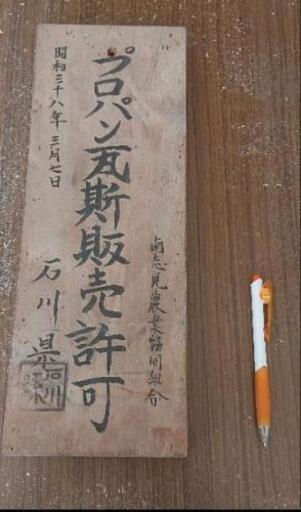 南志見農業協同組合
プロパン瓦斯販売許可
昭和三十八年三月七日
石川県